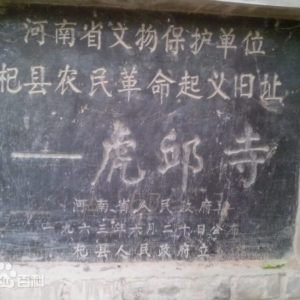 河南省文物保护单位
杞县农民革命起义旧址
——虎邱寺
河南省人民政府
一九六三年六月二十日公布
杞县人民政府立
百科